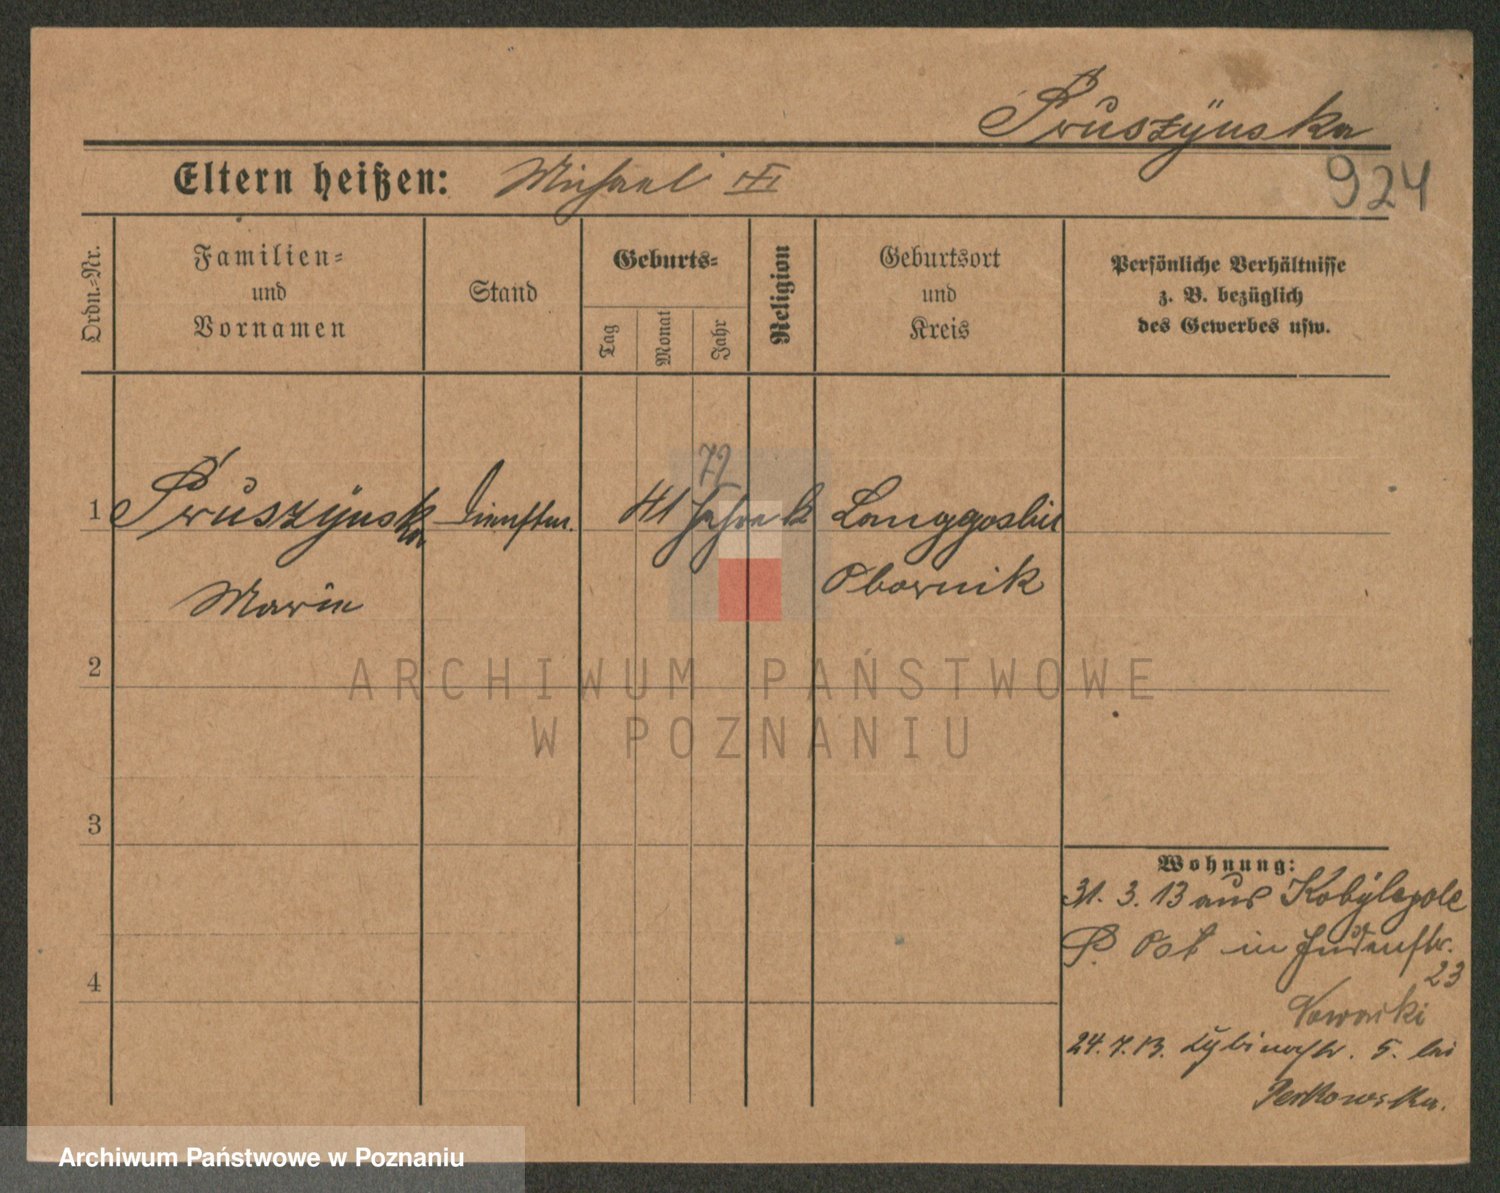 Pruszÿnska
Eltern heißen: Michael
924
Ordn.-Nr.
Familien-
und
Vornamen
Stand
Geburts-
Tag
Monat
Jahr
Religion
Geburtsort
und
Kreis
Persönliche Verhältnisse
z. B. bezüglich
des Gewerbes usw.
72
1 Pruszÿnska Dienstm. 41 Jahre k Langgoslin
Marie Obornik
2
ARCHIWUM PAŃSTWOWE
W POZNANIU
3
Wohnung:
31. 3. 13 aus Kobÿlepole
P. Ost in Judenstr.
23
Nowacki
4
24. 7. 13. 5. bei
Archiwum Państwowe w Poznaniu